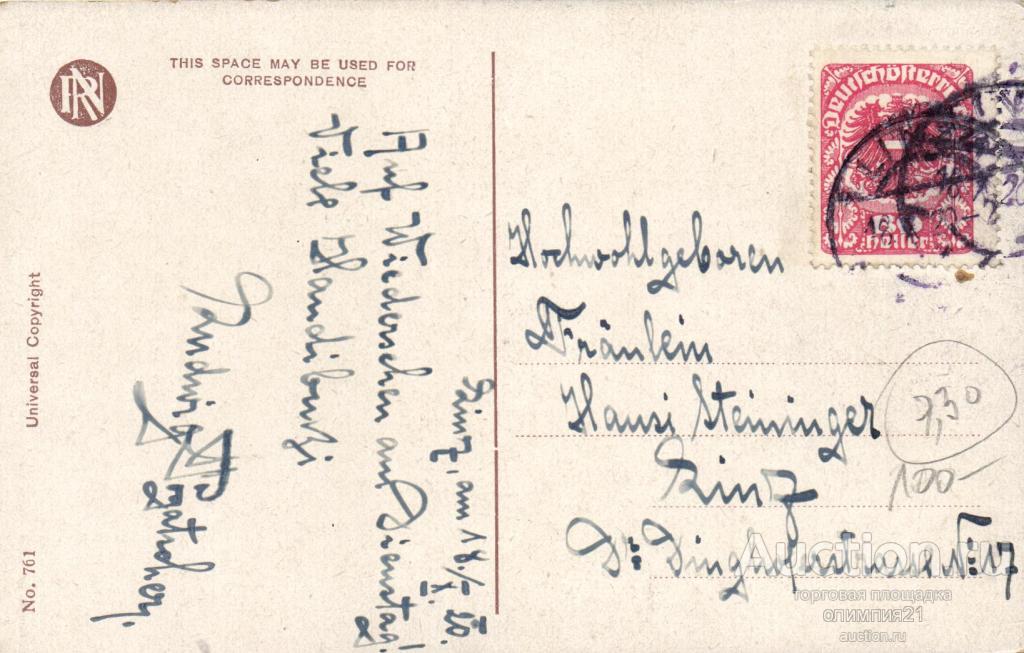 THIS SPACE MAY BE USED FOR
CORRESPONDENCE
RN
Universal Copyright
No. 761
Linz, am 18./X. 20.
Auf Wiedersehen am Dienstag!
Viele Handibussi
Deutschösterreich
Heller
LINZ
Hochwohlgeboren
Fräulein
Hansi Steininger
Linz
Dr. Dinghoferstrasse Nr. 17
7,30
100-
Auction.ru
торговая площадка
олимпия21
auction.ru